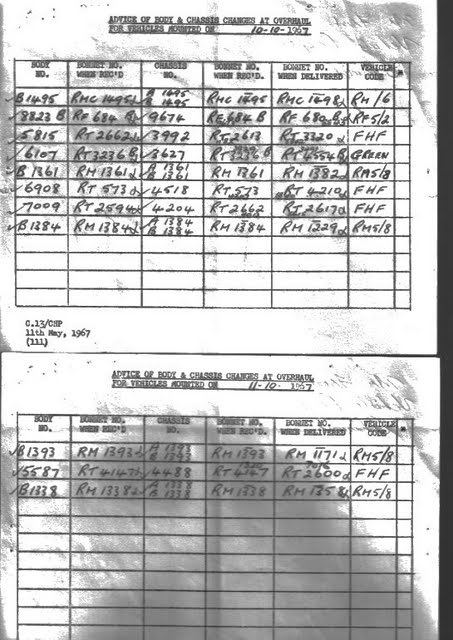 ADVICE OF BODY & CHASSIS CHANGES AT OVERHAUL
FOR VEHICLES MOUNTED ON 10-10-1967
BODY NO. BONNET NO. WHEN REC'D. CHASSIS NO. BONNET NO. WHEN REC'D. BONNET NO. WHEN DELIVERED VEHICLE CODE
B1495 RMC 1495 A 1495 B 1495 RMC 1495 RMC 1498 RM/6
8823 B RF 684 B 9674 RF 684 B RF 680 B RF5/2
5815 RT 2662 3992 RT 2613 RT 3320 FHF
6107 RT 3236 3627 RT 3236 B RT 4554 B GREEN
B1361 RM 1361 A 1361 B 1361 RM 1361 RM 1382 RM5/8
6908 RT 573 4518 RT 573 RT 4210 FHF
7009 RT 2594 4204 RT 2662 RT 2617 FHF
B1384 RM 1384 A 1384 B 1384 RM 1384 RM 1229 RM5/8
C.13/CHP
11th May, 1967
(111)
ADVICE OF BODY & CHASSIS CHANGES AT OVERHAUL
FOR VEHICLES MOUNTED ON 11-10-1967
BODY NO. BONNET NO. WHEN REC'D. CHASSIS NO. BONNET NO. WHEN REC'D. BONNET NO. WHEN DELIVERED VEHICLE CODE
B1393 RM 1393 A 1393 B 1393 RM 1393 RM 1171 RM5/8
5587 RT 4147 4488 RT 4147 RT 2600 FHF
B1338 RM 1338 A 1338 B 1338 RM 1338 RM 1358 RM5/8